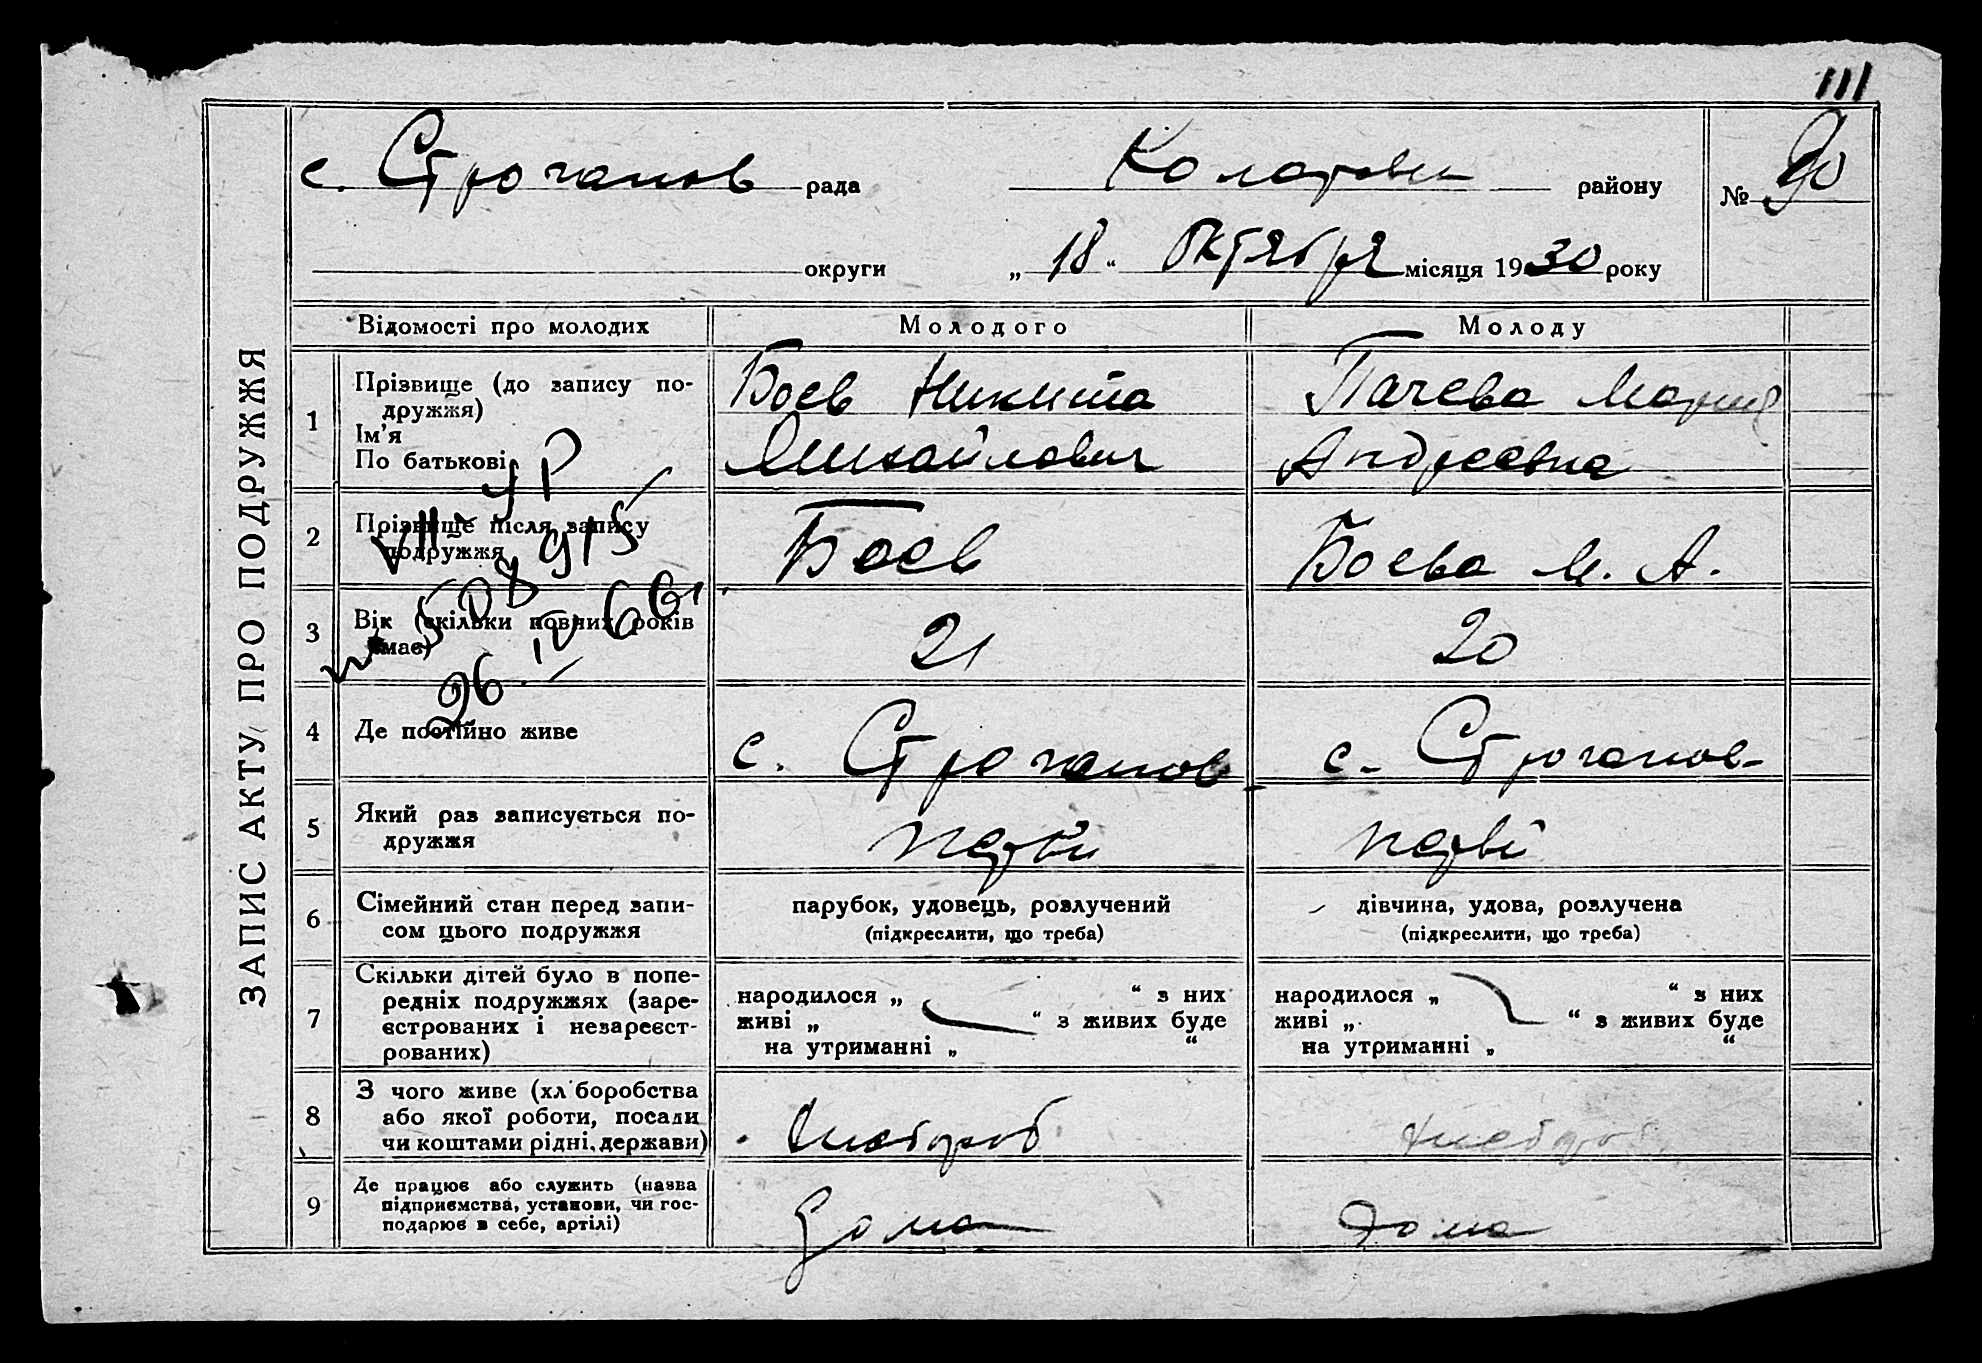 111
с. Строганов рада Коларовск району № 90
округи „ 18 “ Октября місяця 1930 року
ЗАПИС АКТУ ПРО ПОДРУЖЖЯ
Відомості про молодих Молодого Молоду
1 Прізвище (до запису по-
дружжя)
Ім’я
По батькові
Боев Никита
Михайлович
Пачева Мария
Андреевна
2 Прізвище після запису
подружжя
Боев
Боева М. А.
3 Вік (скільки повних років
має)
21
20
4 Де постійно живе
с. Строганов
с. Строганов
5 Який раз записується по-
дружжя
перви
перві
6 Сімейний стан перед запи-
сом цього подружжя
парубок, удовець, розлучений
(підкреслити, що треба)
дівчина, удова, розлучена
(підкреслити, що треба)
7 Скільки дітей було в попе-
редніх подружжях (заре-
єстрованих і незареєст-
рованих)
народилося „ “ з них
живі „ “ з живих буде
на утриманні „ “
народилося „ “ з них
живі „ “ з живих буде
на утриманні „ “
8 З чого живе (хл боробства
або якої роботи, посади
чи коштами рідні, держави)
хлебороб
хлебороб
9 Де працює або служить (назва
підприємства, установи, чи гос-
подарює в себе, артілі)
дома
дома